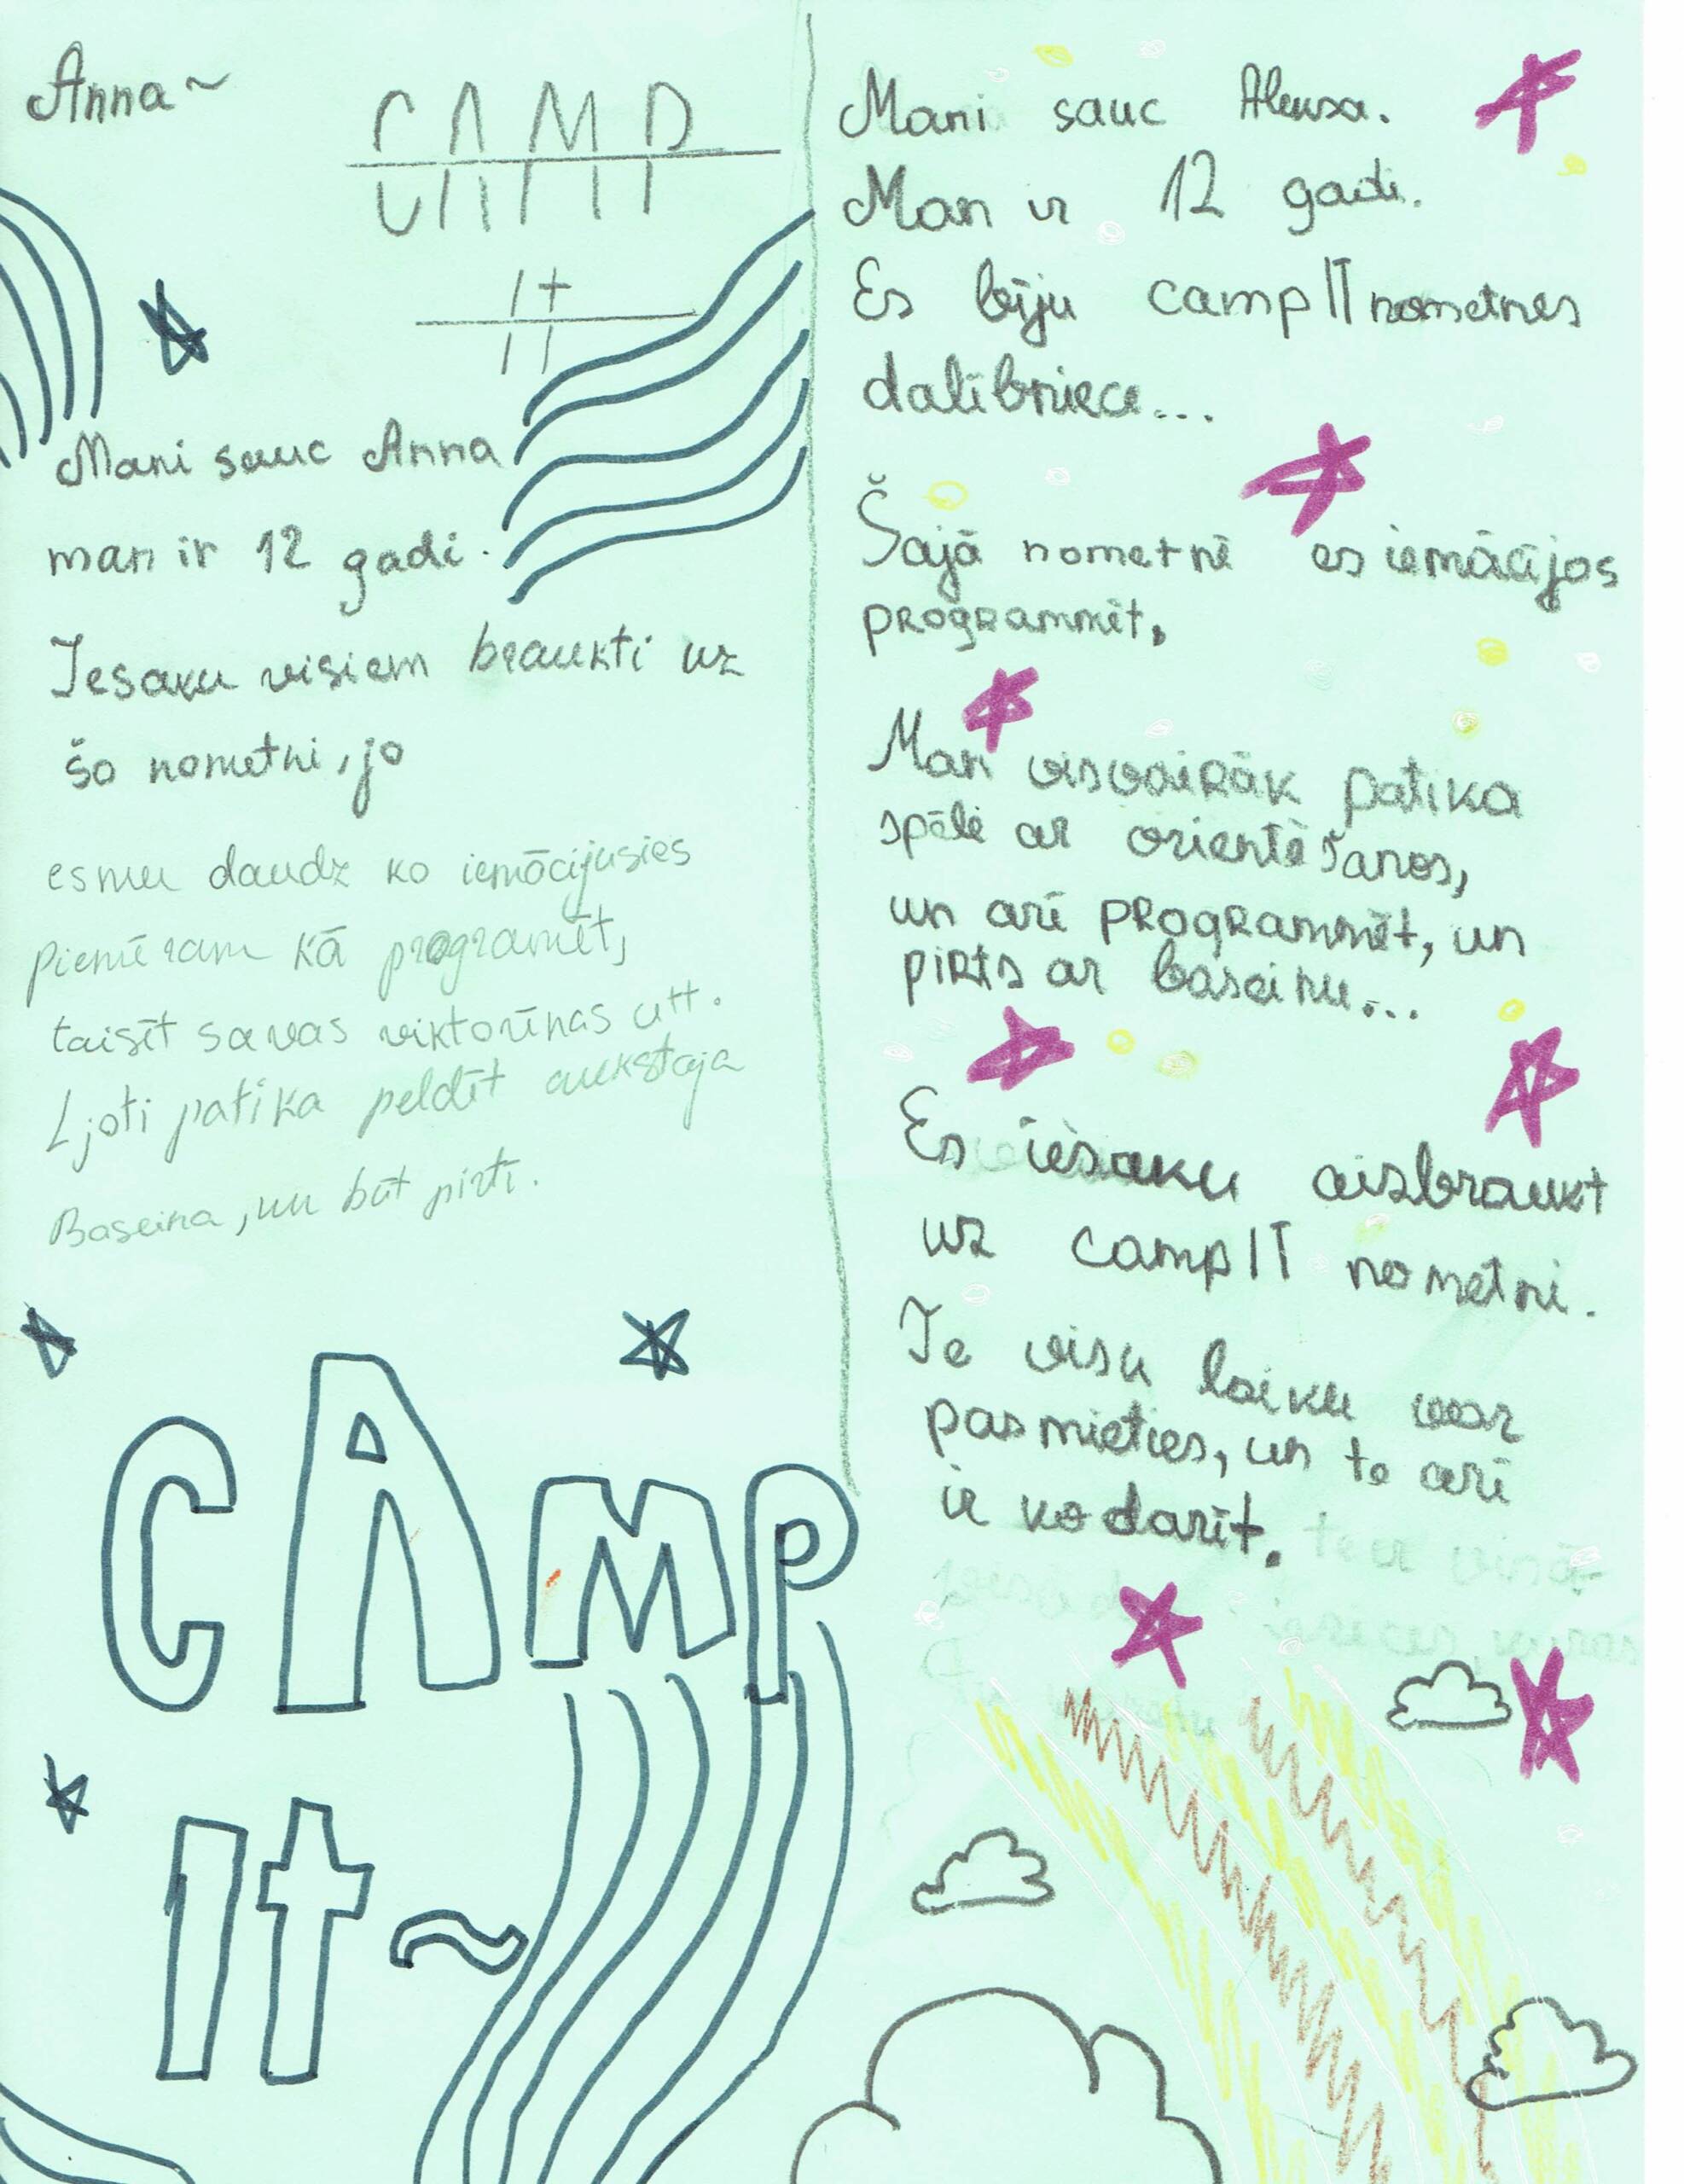 Anna~
CAMP
It
Mani sauc Anna
man ir 12 gadi.
Iesaku visiem braukti uz
šo nometni, jo
esmu daudz ko iemācijusies
piemēram kā programēt,
taisīt savas viktorīnas utt.
Ljoti patika peldēt aukstaja
Baseina, un būt pirti.
CAMP
It~
Mani sauc
Man ir 12 gadi.
Es biju campIT nometnes
dalībniece...
Šajā nometnē es iemācījos
programmēt.
Man visvairāk patika
spēle ar orientēšanos,
un arī programmēt, un
pirts ar baseinu...
Es iesaku aizbraukt
uz campIT nometni.
Te visu laiku var
pasmieties, un te arī
ir ko darīt.